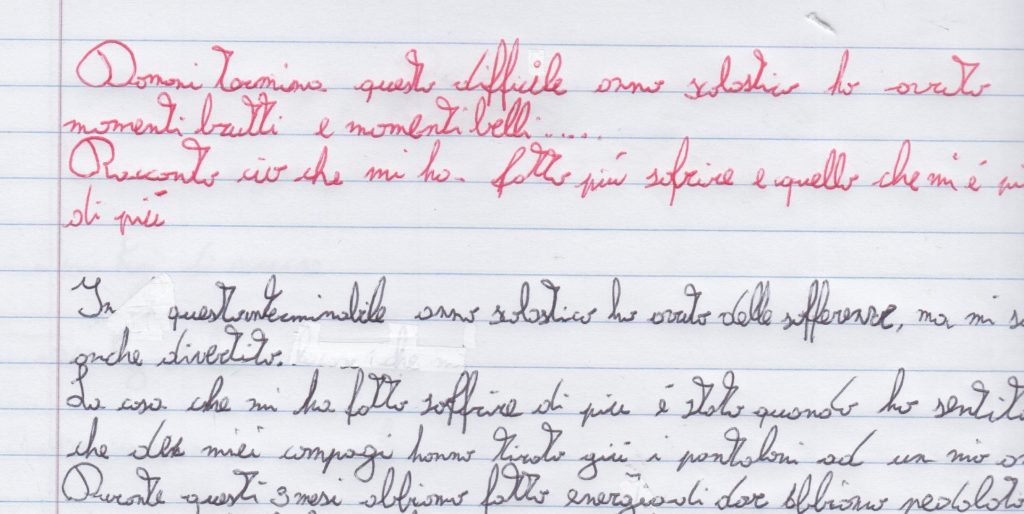 Domani termina questo difficile anno scolastico ho avuto
momenti brutti e momenti belli.....
Racconto ciò che mi ha fatto più sofrire e quello che mi é pi
di più
In questinterminabile anno scolastico ho avuto delle sofferenze, ma mi s
anche divertito.
La cosa che mi ha fatto soffrire di più é stato quando ho sentito
che dei miei compagi hanno tirato giù i pantaloni ad un mio
Durante questi 3 mesi abbiamo fatto energiadi dove abbiamo pedalato